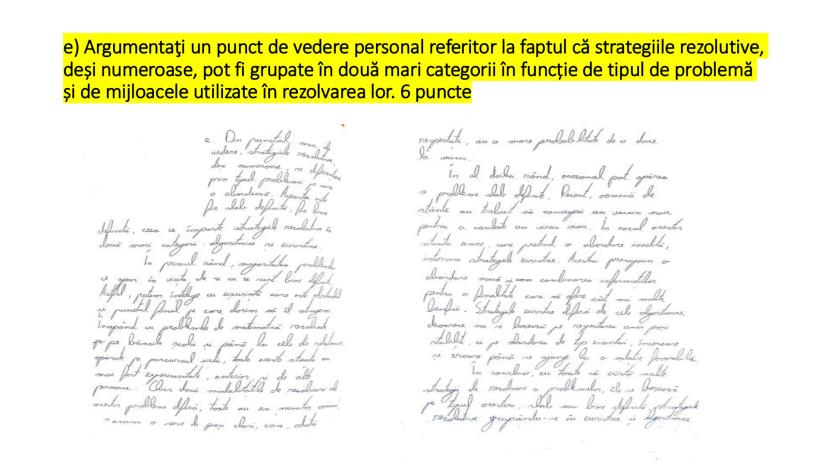 e) Argumentați un punct de vedere personal referitor la faptul că strategiile rezolutive,
deși numeroase, pot fi grupate în două mari categorii în funcție de tipul de problemă
și de mijloacele utilizate în rezolvarea lor. 6 puncte
e. Din punctul meu de
vedere, strategiile rezolutive,
deși numeroase, se diferențiază
prin tipul problemei pe care
o abordează. Aceasta este
fie slab definită, fie bine
definită, ceea ce împarte strategiile rezolutive în
două mari categorii: algoritmice și euristice.
În primul rând, majoritatea problemelor
ce apar în viața de zi cu zi sunt bine definite.
Astfel, putem înțelege cu ușurință care este
și punctul final pe care dorim să îl atingem.
Începând cu problemele de matematică rezolvate
pe băncile școlii și până la cele de
apărute pe parcursul vieții, toate acestea
mai fost experimentate, anterior, și de alte
persoane. Chiar dacă modalitățile de rezolvare ale
acestor probleme diferă, toate au un numitor comun,
o serie de pași clari, care, odată
respectate, au o mare probabilitate de a duce
la succes.
În al doilea rând, ocazional pot apărea
și probleme slab definite. Recent, oamenii de
știință au trebuit să conceapă un vaccin nou
pentru a combate un virus nou. În cazul acestor
situații care pretind o abordare inedită,
intervin strategiile euristice. Acestea presupun o
abordare nouă combinarea informațiilor
pentru o finalitate care să ofere cât mai multe
beneficii. Strategiile euristice diferă de cele algoritmice
deoarece nu se bazează pe respectarea unor pași
stabiliți, ci pe abordarea de tip încercare
și eroare până se ajunge la o soluție favorabilă.
În concluzie, cu toate că există multe
strategii de rezolvare a problemelor, ele se bazează
pe tipul acestora, slab sau bine definite, strategiile
rezolutive grupându-se în euristice și algoritmice.